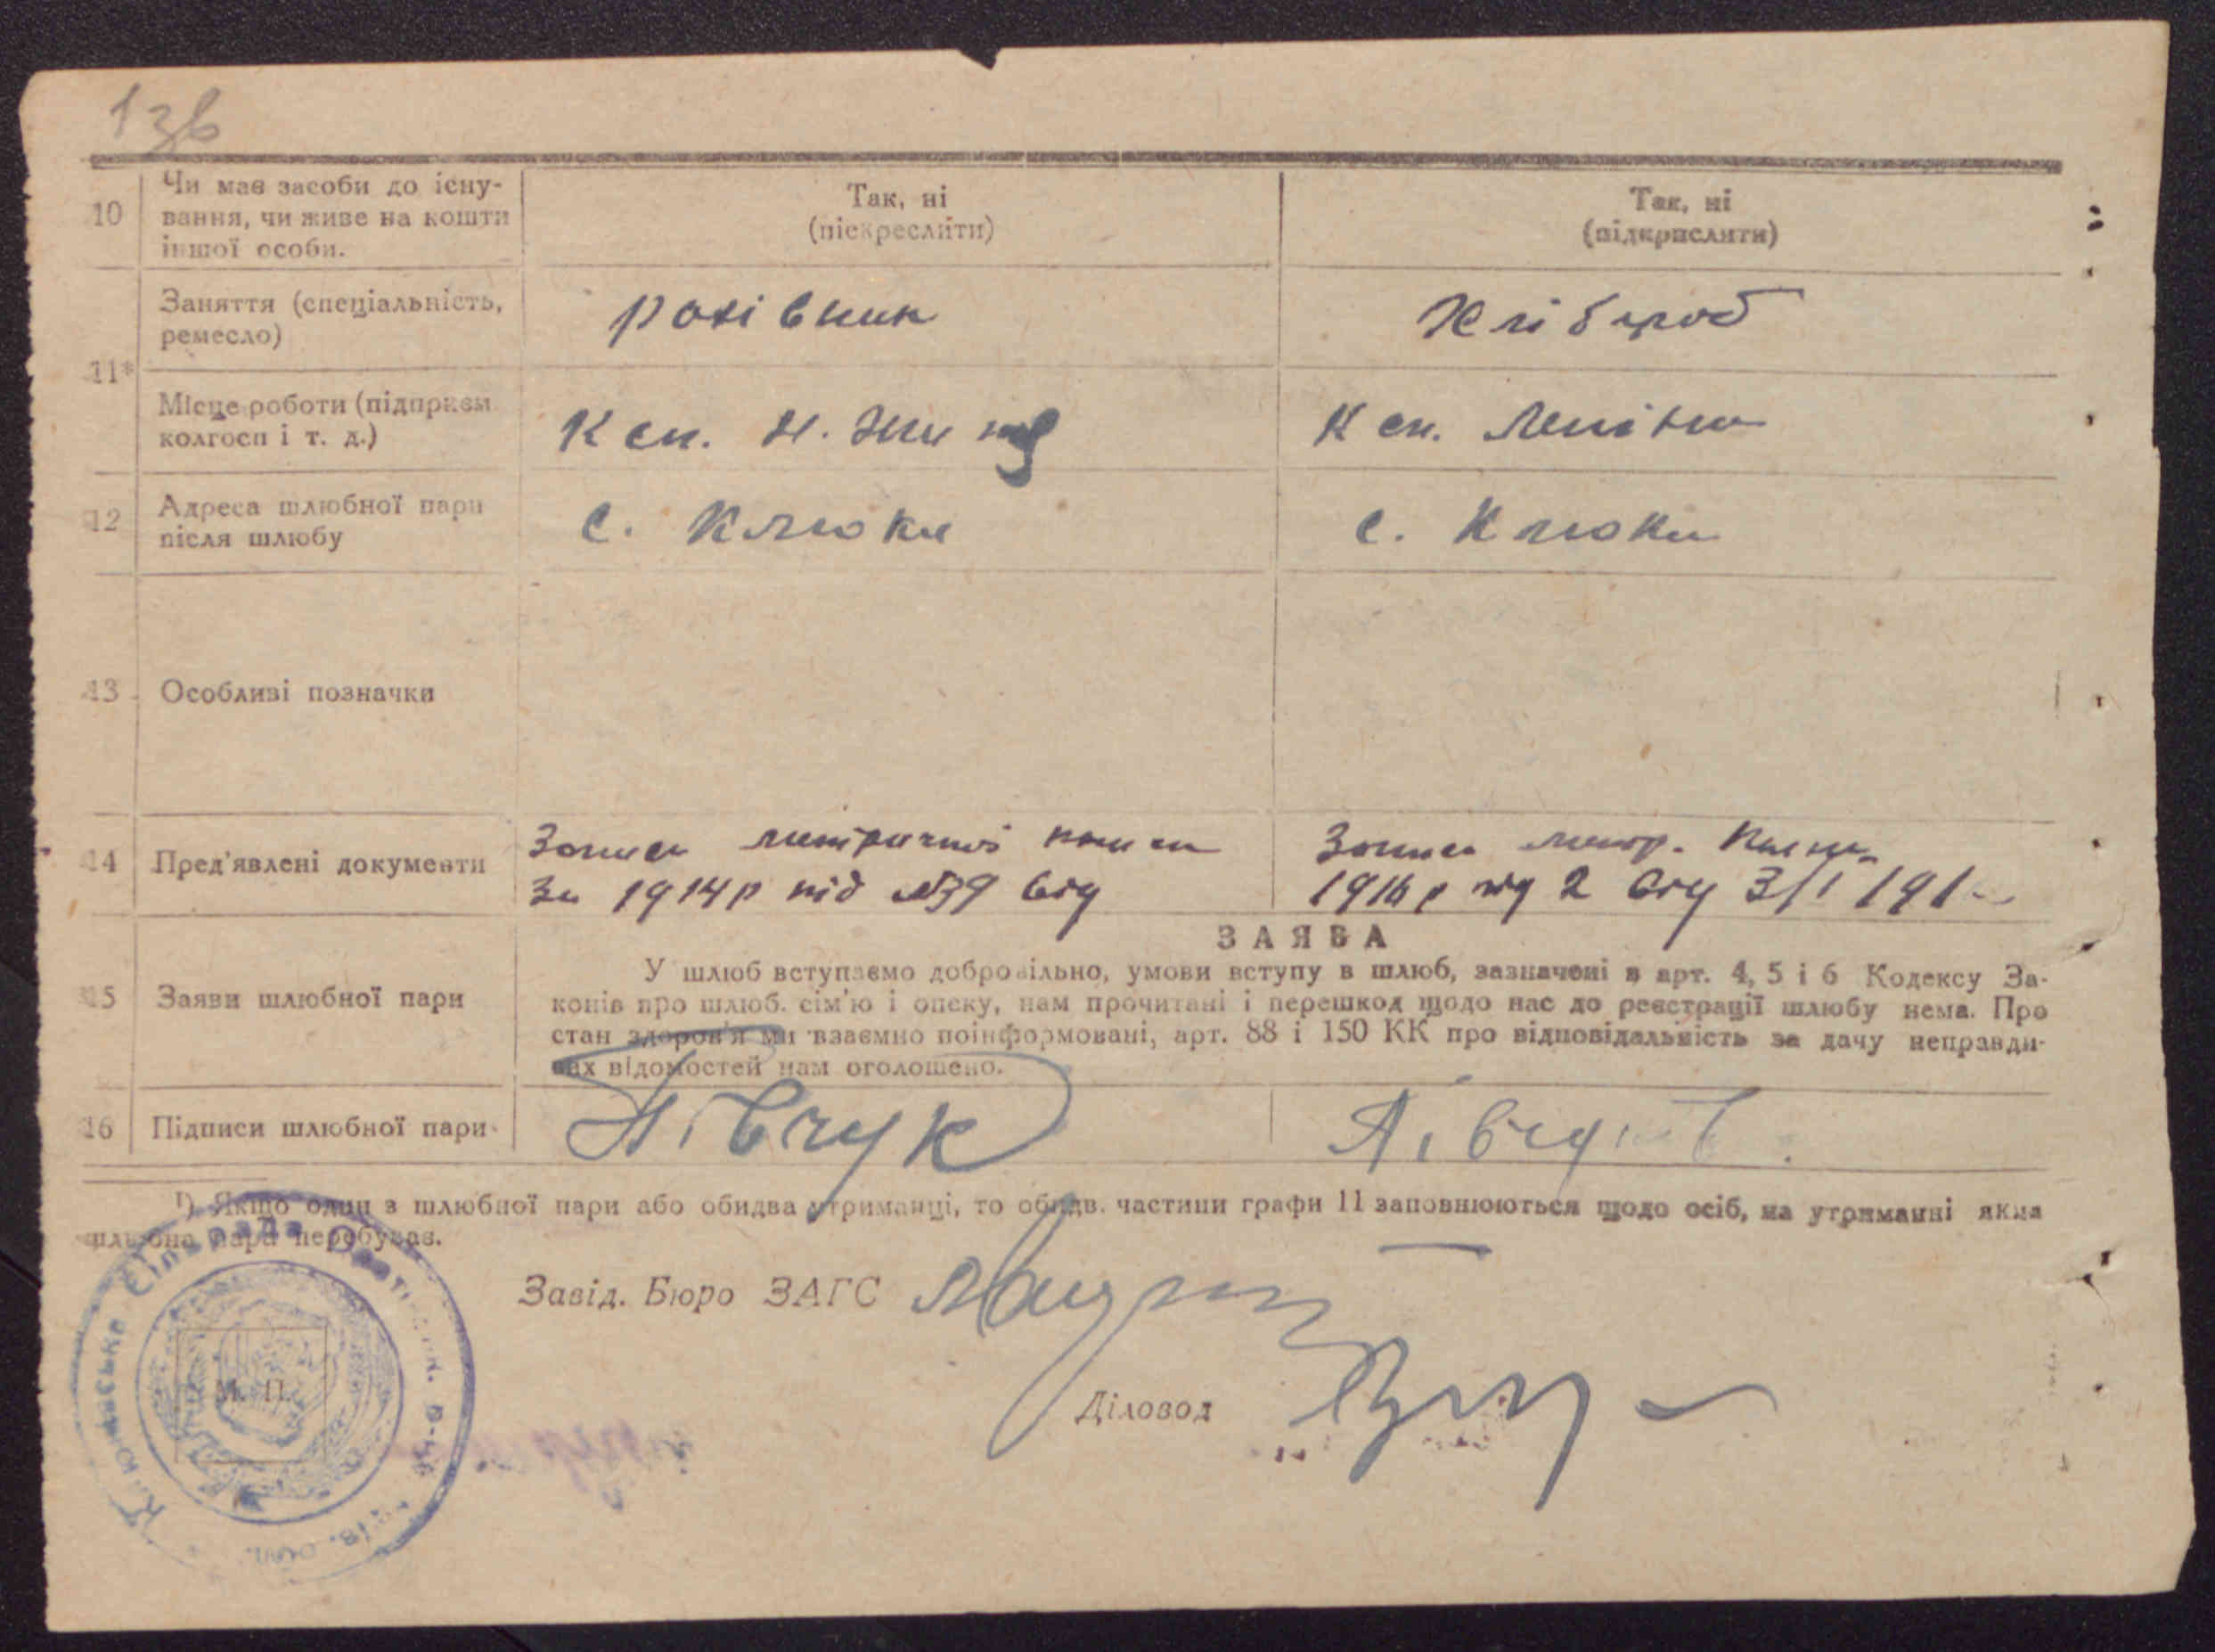 13в
10 Чи має засоби до існу-
вання, чи живе на кошти
іншої особи.
Так, ні
(піскреслити)
Так, ні
(підкрислити)
11*
Заняття (спеціальність,
ремесло)
рахівник
Хлібороб
Місце роботи (підприєм
колгосп і т. д.)
Ксп. Н. Життя
Ксп. Леніна
12 Адреса шлюбної пари
після шлюбу
с. Клюки
с. Клюки
13 Особливі позначки
14 Пред'явлені документи
Запис метричної книги
За 1914р під №39 від
Запис метр. Книги
1916р під 2 від 3/I 191
15 Заяви шлюбної пари
ЗАЯВА
У шлюб вступаємо добровільно, умови вступу в шлюб, зазначені в арт. 4, 5 і 6 Кодексу За-
конів про шлюб. сім'ю і опеку, нам прочитані і перешкод щодо нас до реєстрації шлюбу нема. Про
стан здоров'я ми взаємно поінформовані, арт. 88 і 150 КК про відповідальність за дачу неправди-
вих відомостей нам оголошено.
16 Підписи шлюбної пари
Півчук
¹) Якщо один з шлюбної пари або обидва утриманці, то обидв. частини графи 11 заповнюються щодо осіб, на утриманні яких
шлюбна пара перебуває.
Завід. Бюро ЗАГС
Діловод
М. П.